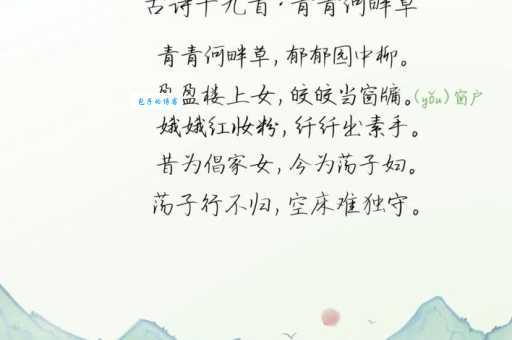 古诗十九首·青青河畔草
青青河畔草，郁郁园中柳。
盈盈楼上女，皎皎当窗牖。(yǒu)窗户
包子的博客
娥娥红妆粉，纤纤出素手。
昔为倡家女，今为荡子妇。
荡子行不归，空床难独守。